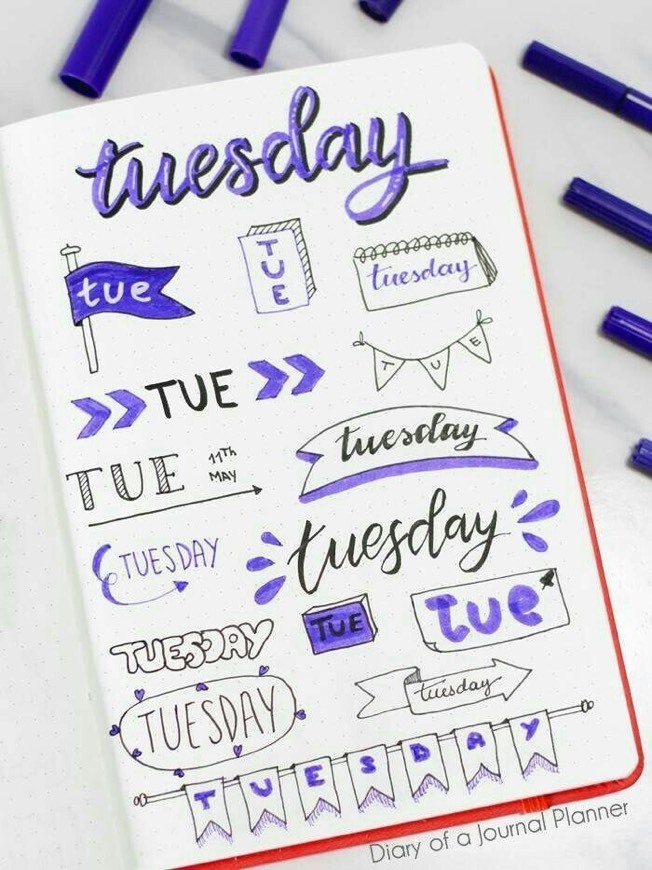 tuesday
tue
TUE
tuesday
TUE
TUE
tuesday
TUE 11TH MAY
TUESDAY
tuesday
TUESDAY
TUE
tue
TUESDAY
tuesday
TUESDAY
Diary of a Journal Planner